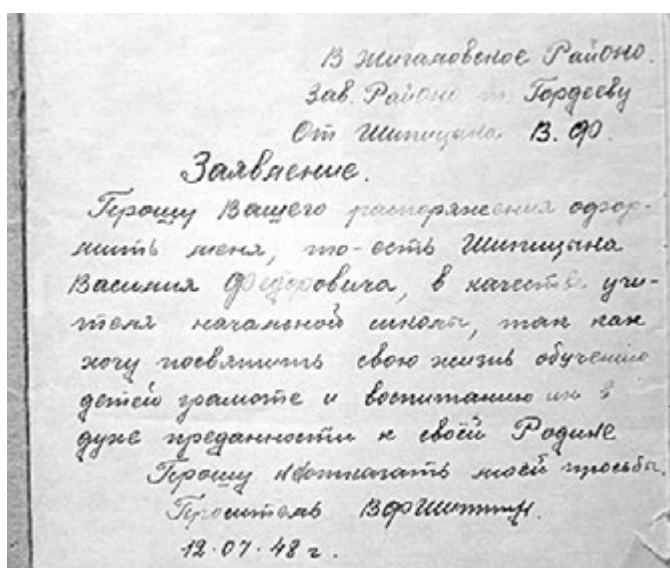 В Жигаловское Районо.
Зав. Районо т. Гордееву
От Шипицына В. Ф.
Заявление.
Прошу Вашего распоряжения офор-
мить меня, то-есть Шипицына
Василия Федоровича, в качестве учи-
теля начальной школы, так как
хочу посвятить свою жизнь обучению
детей грамоте и воспитанию их в
духе преданности к своей Родине
Прошу неотказать моей просьбы.
Проситель
12.07.48 г.